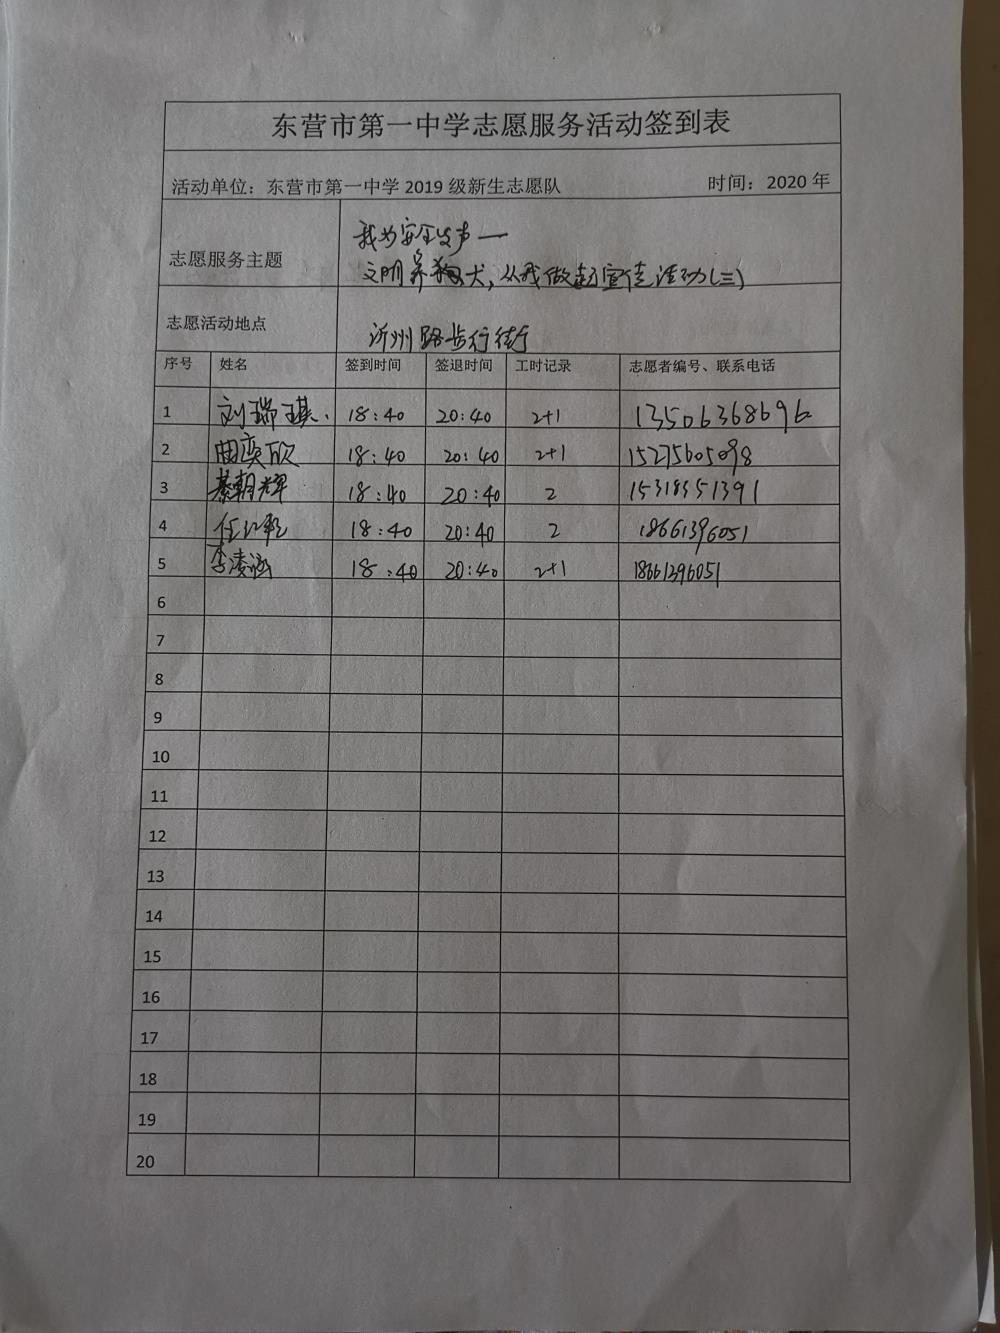 东营市第一中学志愿服务活动签到表
活动单位：东营市第一中学 2019 级新生志愿队 时间：2020 年
志愿服务主题 我为安全发声一
文明养犬，从我做起宣传活动(三)
志愿活动地点 沂州路步行街
序号 姓名 签到时间 签退时间 工时记录 志愿者编号、联系电话
1 刘瑞琪 18:40 20:40 2+1 13506368696
2 曲奕欣 18:40 20:40 2+1 15275605098
3 綦朝辉 18:40 20:40 2 15318351391
4 任 18:40 20:40 2 18661396051
5 李凌涵 18:40 20:40 2+1 18661396051
6
7
8
9
10
11
12
13
14
15
16
17
18
19
20